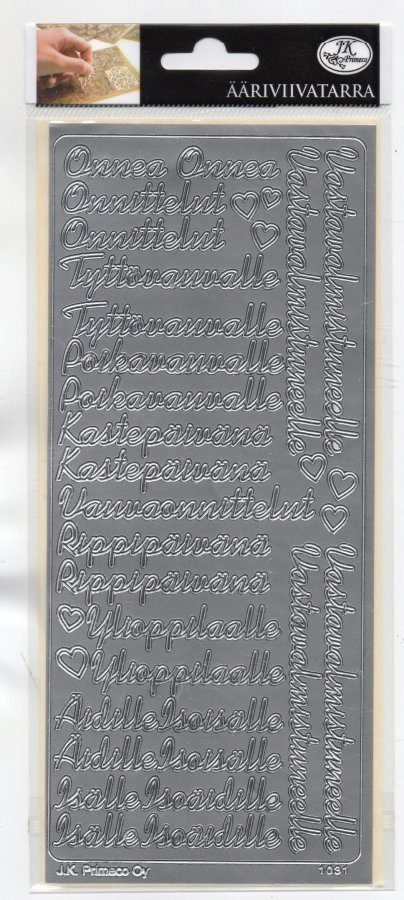 J.K.
Primeco
ÄÄRIVIIVATARRA
Onnea Onnea
Onnittelut
Onnittelut
Tyttövauvalle
Tyttövauvalle
Poikavauvalle
Poikavauvalle
Kastepäivänä
Kastepäivänä
Vauvaonnittelut
Rippipäivänä
Rippipäivänä
Ylioppilaalle
Ylioppilaalle
Äidille Isoisälle
Äidille Isoisälle
Isälle Isoäidille
Isälle Isoäidille
Vastavalmistuneelle
Vastavalmistuneelle
Vastavalmistuneelle
Vastavalmistuneelle
J.K. Primeco Oy
1031